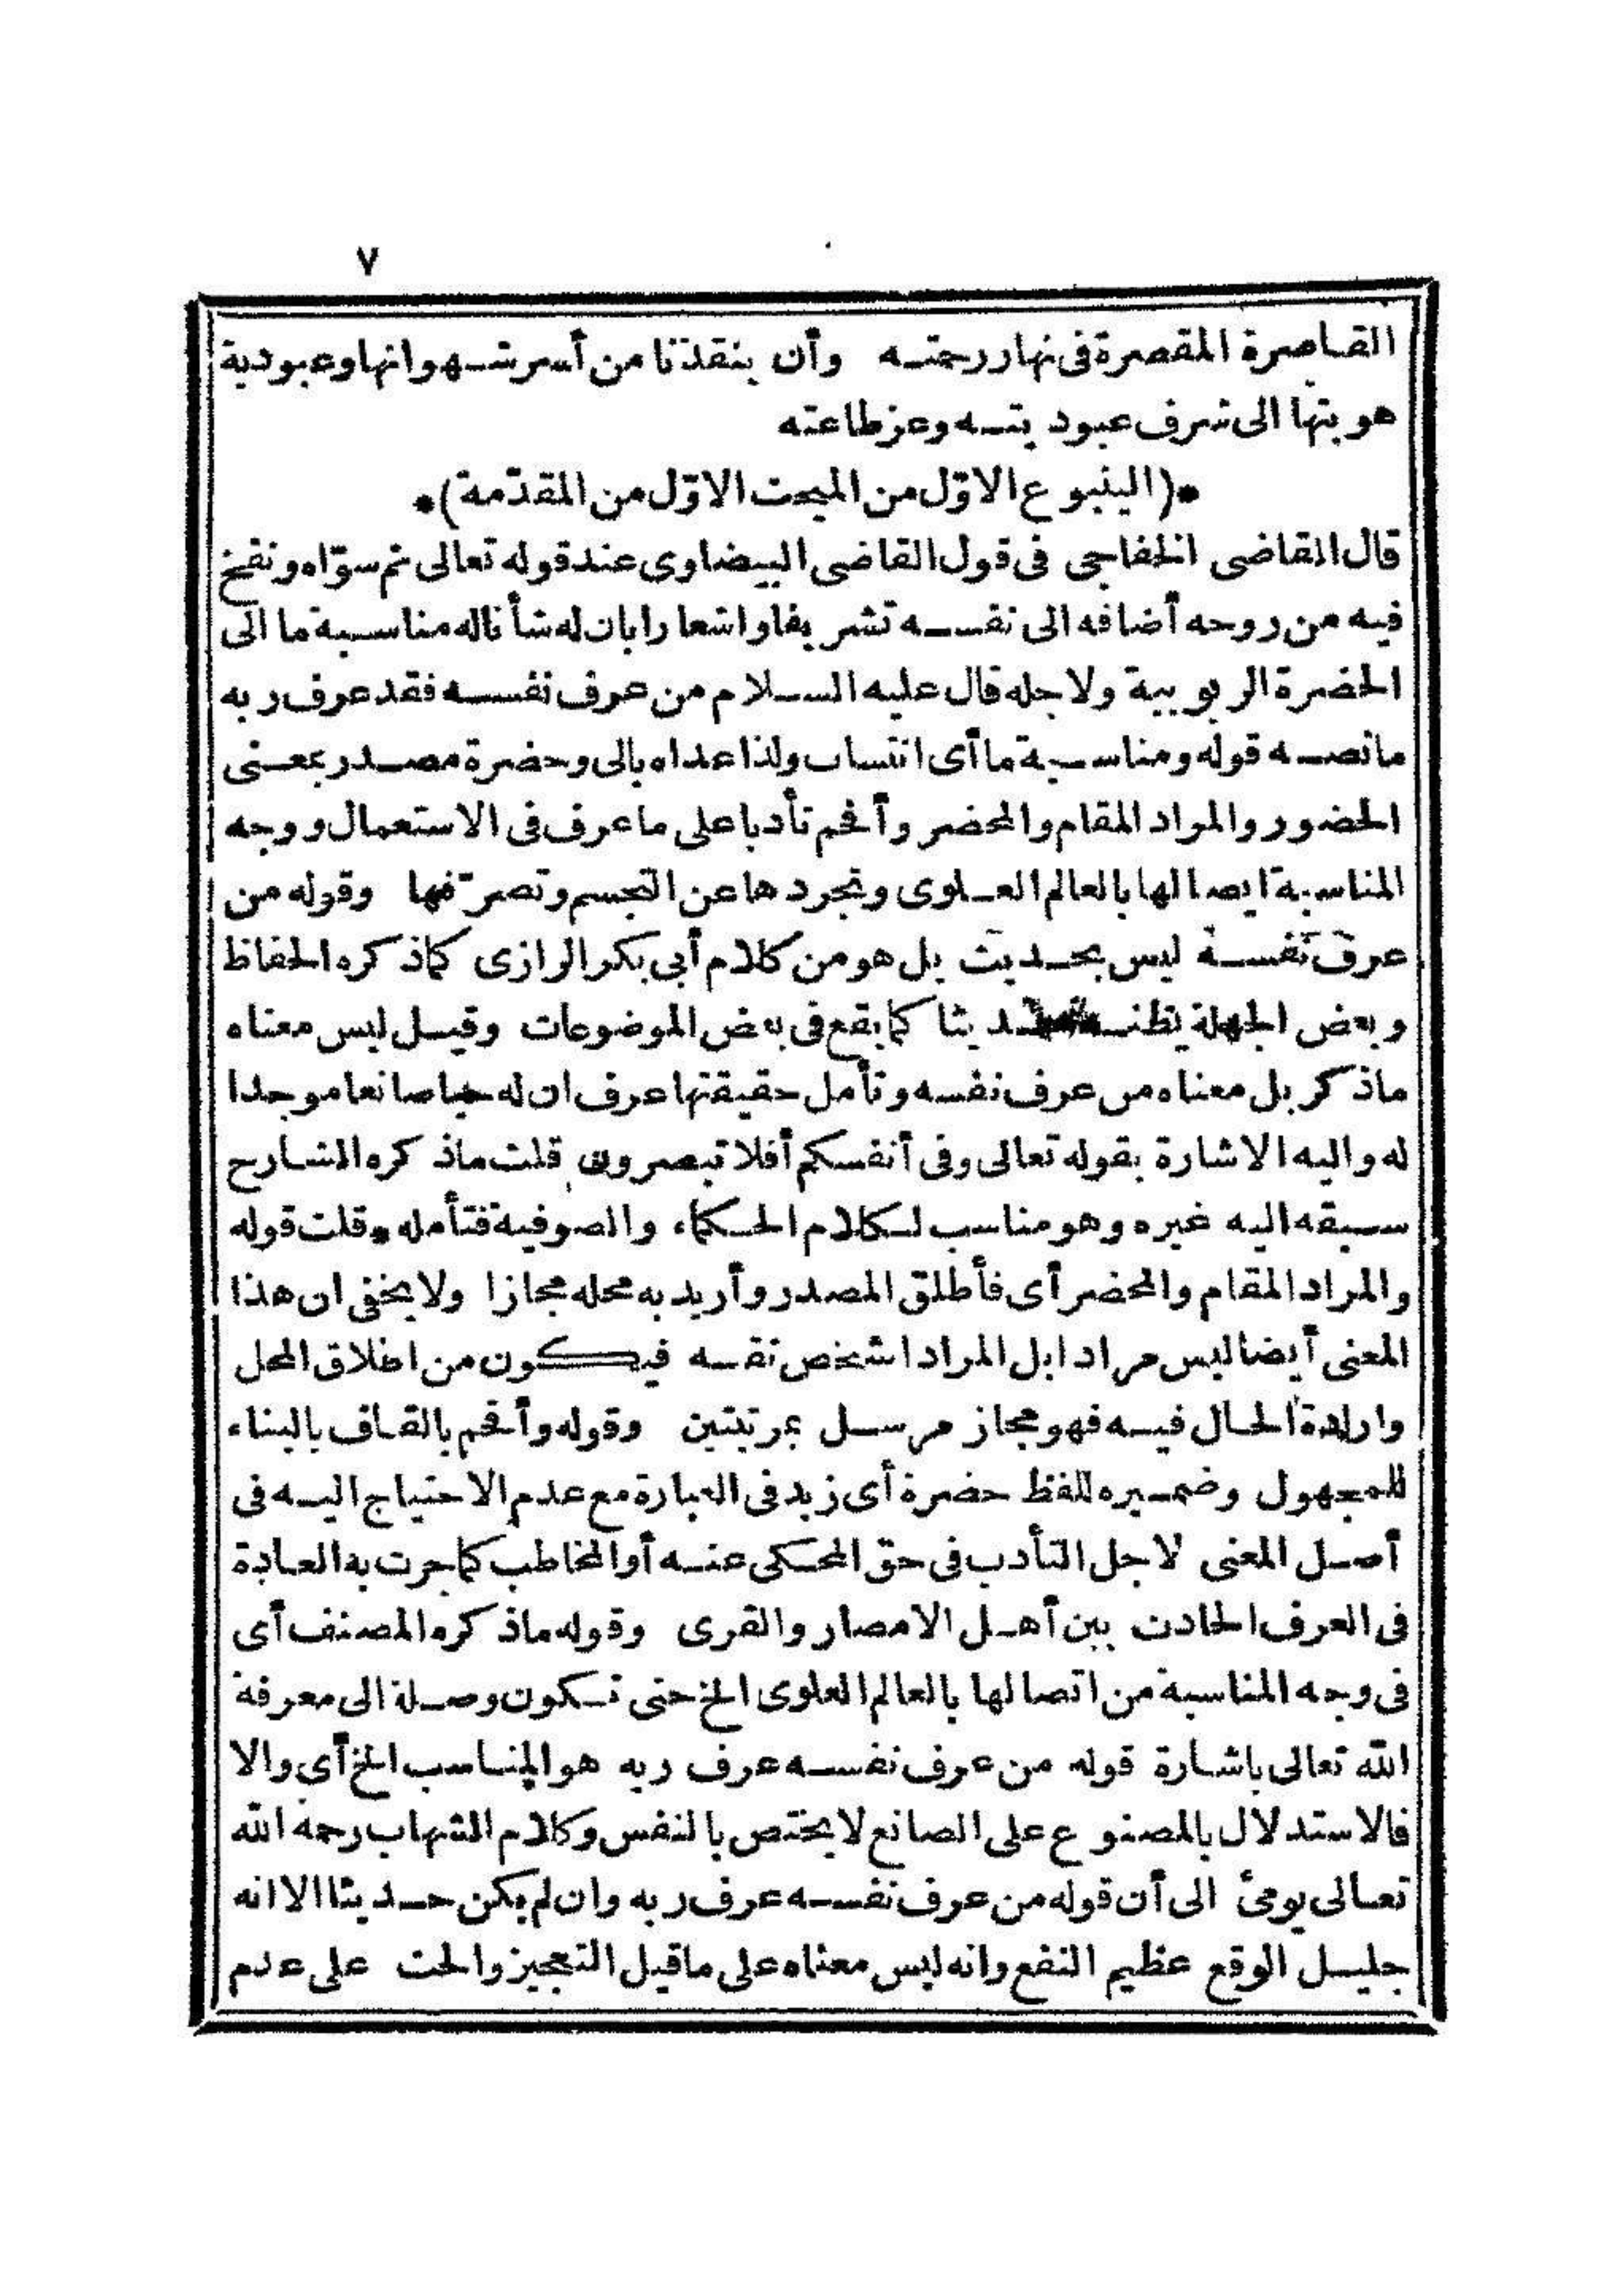 ٧
القاصرة المقصرة فى نهار رحمته وأن ينقذنا من أسر شهواتها وعبودية
هويتها الى شرف عبوديته وعز طاعته
*(الينبوع الاوّل من المبحث الاوّل من المقدّمة)*
قال القاضى الخفاجى فى قول القاضى البيضاوى عند قوله تعالى ثم سوّاه ونفخ
فيه من روحه أضافه الى نفسه تشريفا واشعارا بان له شأنا له مناسبة ما الى
الحضرة الربوبية ولاجله قال عليه السلام من عرف نفسه فقد عرف ربه
ما نصه قوله ومناسبة ما أى انتساب ولذا عداه بالى وحضرة مصدر بمعنى
الحضور والمراد المقام والمحضر وأقحم تأدبا على ما عرف فى الاستعمال ووجه
المناسبة ايصالها بالعالم العلوى وتجردها عن التجسم وتصرّفها وقوله من
عرف نفسه ليس بحديث بل هو من كلام أبى بكر الرازى كما ذكره الحفاظ
وبعض الجهلة يظنه حديثا كما يقع فى بعض الموضوعات وقيل ليس معناه
ما ذكر بل معناه من عرف نفسه وتأمل حقيقتها عرف ان له صانعا موجدا
له واليه الاشارة بقوله تعالى وفى أنفسكم أفلا تبصرون قلت ما ذكره الشارح
سبقه اليه غيره وهو مناسب لكلام الحكماء والصوفية فتأمله * وقلت قوله
والمراد المقام والمحضر أى فأطلق المصدر وأريد به محله مجازا ولا يخفى ان هذا
المعنى أيضا ليس مرادا بل المراد الشخص نفسه فيكون من اطلاق المحل
وارادة الحال فيه فهو مجاز مرسل بمرتبتين وقوله وأقحم بالقاف بالبناء
للمجهول وضميره للفظ حضرة أى زيد فى العبارة مع عدم الاحتياج اليه فى
أصل المعنى لاجل التأدب فى حق المحكى عنه أو المخاطب كما جرت به العادة
فى العرف الحادث بين أهل الامصار والقرى وقوله ما ذكره المصنف أى
فى وجه المناسبة من اتصالها بالعالم العلوى الخ حتى تكون وصلة الى معرفة
الله تعالى باشارة قوله من عرف نفسه عرف ربه هو المناسب الخ أى والا
فالاستدلال بالمصنوع على الصانع لا يختص بالنفس وكلام الشهاب رحمه الله
تعالى يومئ الى أن قوله من عرف نفسه عرف ربه وان لم يكن حديثا الا انه
جليل الوقع عظيم النفع وانه ليس معناه على ما قيل التعجيز والحث على عدم